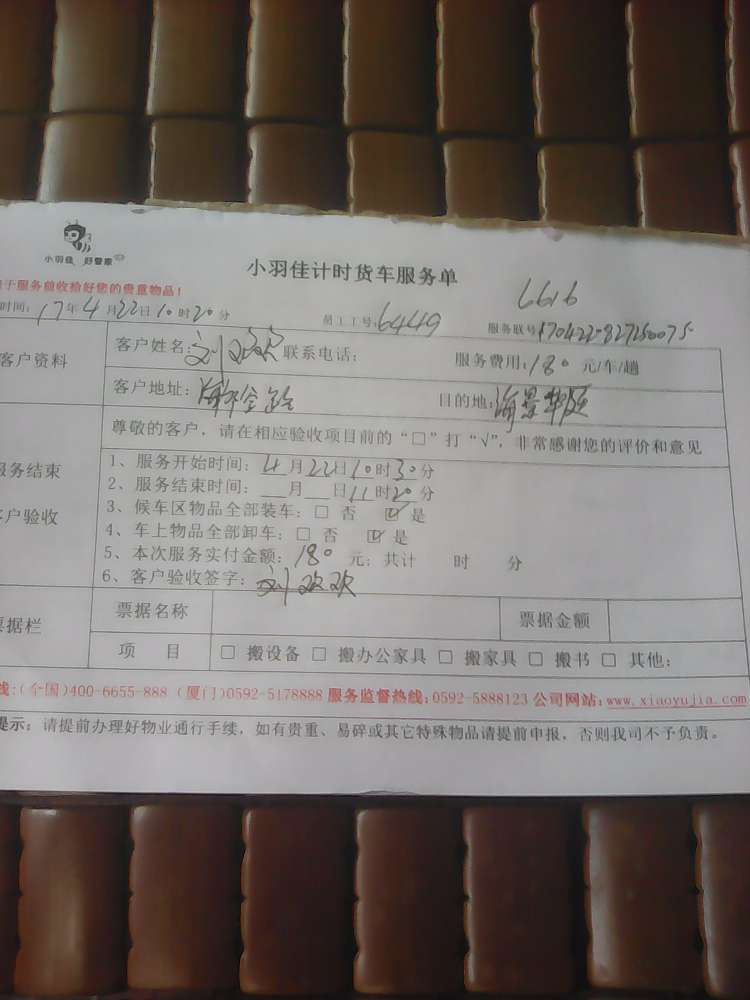 小羽佳 好管家
小羽佳计时货车服务单
于服务前收拾好您的贵重物品！
6616
时间：17年4月22日10时20分 员工工号：6449 服务联号170422-827250075
客户资料 客户姓名：刘欢欢 联系电话： 服务费用：180元/车/趟
客户地址： 目的地：海景
尊敬的客户，请在相应验收项目前的“□”打“√”，非常感谢您的评价和意见
服务结束
客户验收
1、服务开始时间：4月22日10时30分
2、服务结束时间：__月__日11时20分
3、候车区物品全部装车：□ 否 ☑ 是
4、车上物品全部卸车：□ 否 ☑ 是
5、本次服务实付金额：180 元；共计 时 分
6、客户验收签字：刘欢欢
票据栏 票据名称 票据金额
项 目 □ 搬设备 □ 搬办公家具 □ 搬家具 □ 搬书 □ 其他：
线：（全国）400-6655-888（厦门）0592-5178888 服务监督热线：0592-5888123 公司网站：www.xiaoyujia.com
提示：请提前办理好物业通行手续，如有贵重、易碎或其它特殊物品请提前申报，否则我司不予负责。